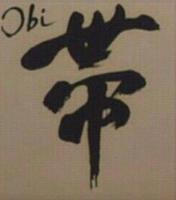 Obi
帯